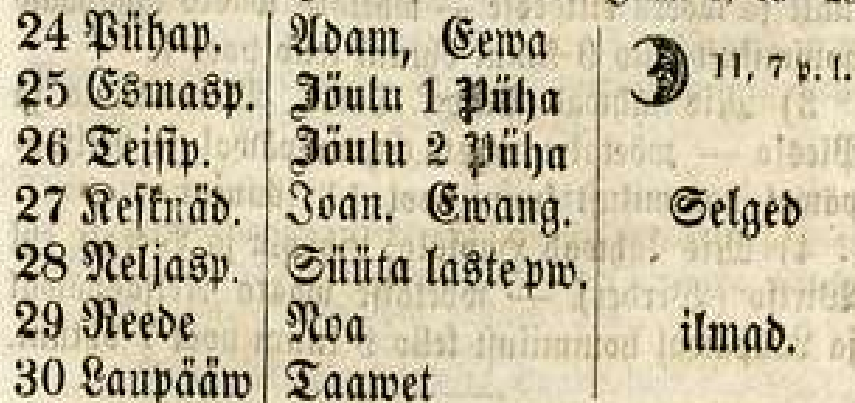 24 Pühap. Adam, Eewa
25 Esmasp. Jöulu 1 Püha 11, 7 p. l.
26 Teisip. Jöulu 2 Püha
27 Kesknäd. Joan. Ewang. Selged
28 Neljasp. Süüta laste pw.
29 Reede Noa ilmad.
30 Laupääw Taawet